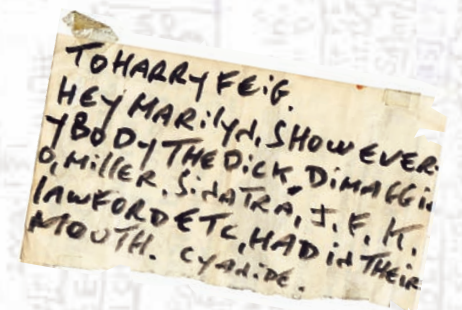 TO HARRY FEIG.
HEY MARILYN, SHOW EVER
YBODY THE DICK, DIMAGGI
O, MILLER, SINATRA, J. F. K.
LAWFORD ETC, HAD IN THEIR
MOUTH. CYANIDE.